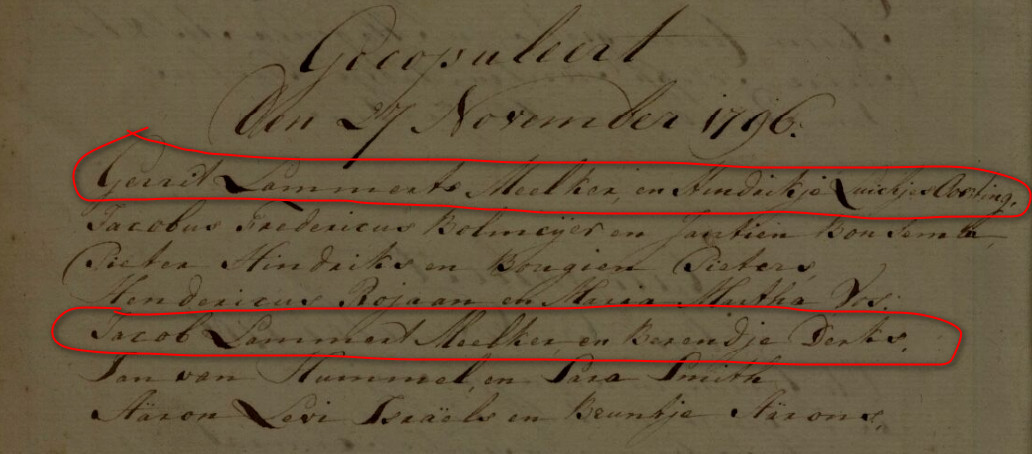 Gecopuleert
den 27 November 1796.
Gerrit Lammerts Meelker, en Hindrikje Luichjes Oosting.
Jacobus Fredericus Bolmeijer en Jantien Bonsema,
Pieter Hindriks en Bougien Pieters,
Hendericus Rojaan en Maria Vos.
Jacob Lammert Meelker, en Berendje Derks,
Jan van Hummel, en Sara Smith
Aäron Levi Israëls en Beuntje Aärons,